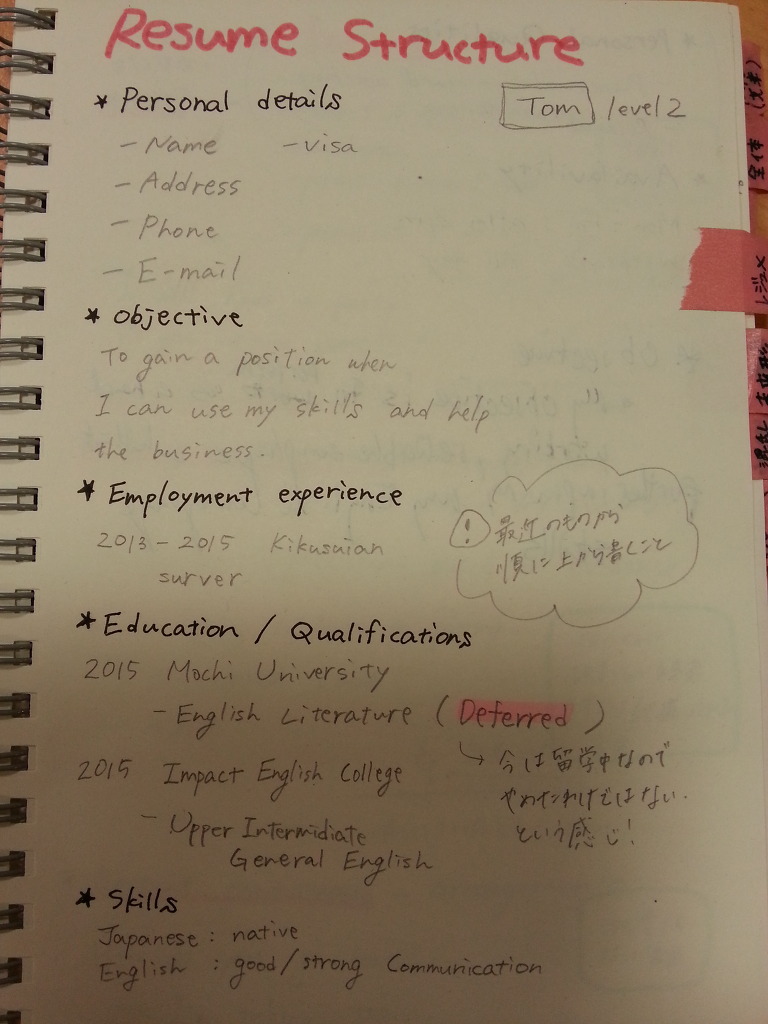 Resume Structure
* Personal details
Tom level 2
- Name - visa
- Address
- Phone
- E-mail
* Objective
To gain a position when
I can use my skills and help
the business.
* Employment experience
2013 - 2015 Kikusuian
surver
! 最近のものから
順に上から書くこと
* Education / Qualifications
2015 Mochi University
- English Literature (Deferred)
→ 今は留学中なので
やめたわけではない.
という感じ!
2015 Impact English College
- Upper Intermidiate
General English
* Skills
Japanese : native
English : good/strong Communication
全体
レジュメ